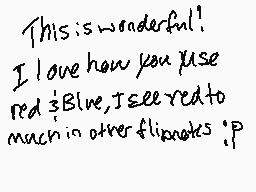 This is wonderful!
I love how you use
red & Blue, I see red to
much in other flipnotes :P